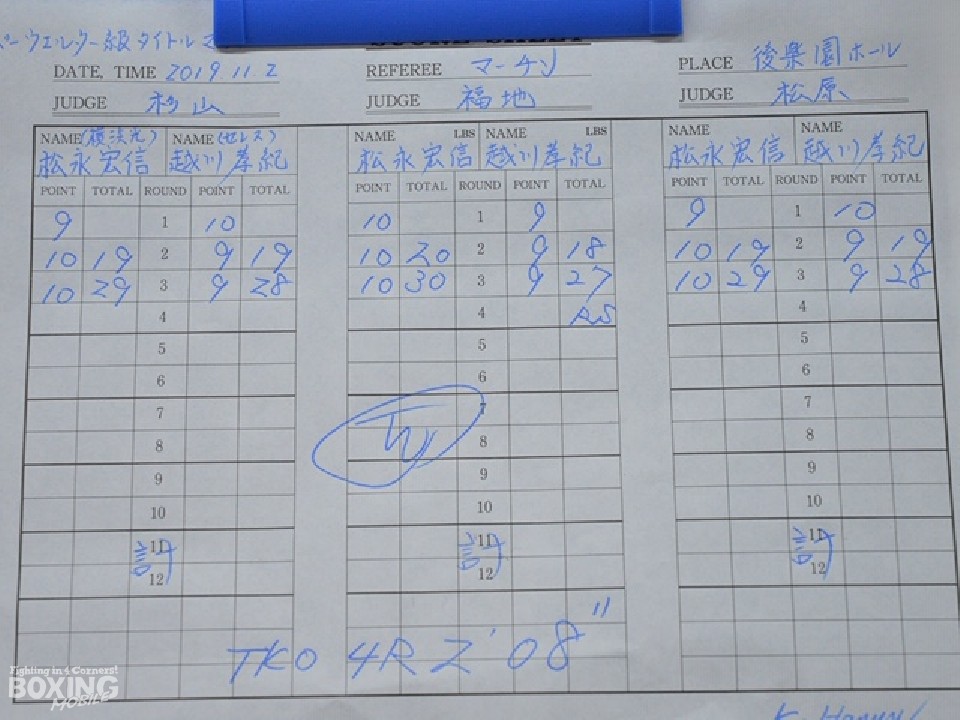 パーウェルター級タイトルマ
SCORE SHEET
DATE, TIME 2019 11 2 REFEREE マーチン PLACE 後楽園ホール
JUDGE 杉山 JUDGE 福地 JUDGE 松原
NAME (横浜光) NAME (セレス) NAME LBS NAME LBS NAME NAME
松永宏信 越川孝紀 松永宏信 越川孝紀 松永宏信 越川孝紀
POINT TOTAL ROUND POINT TOTAL POINT TOTAL ROUND POINT TOTAL POINT TOTAL ROUND POINT TOTAL
9 1 10 10 1 9 9 1 10
10 19 2 9 19 10 20 2 9 18 10 19 2 9 19
10 29 3 9 28 10 30 3 9 27 10 29 3 9 28
4 4 4
5 5 5
6 6 6
7 7 7
8 8 8
9 9 9
10 10 10
11 11 11
計 計 計
12 12 12
TKO 4R 2'08"
Fighting in 4 Corners!
BOXING
MOBILE